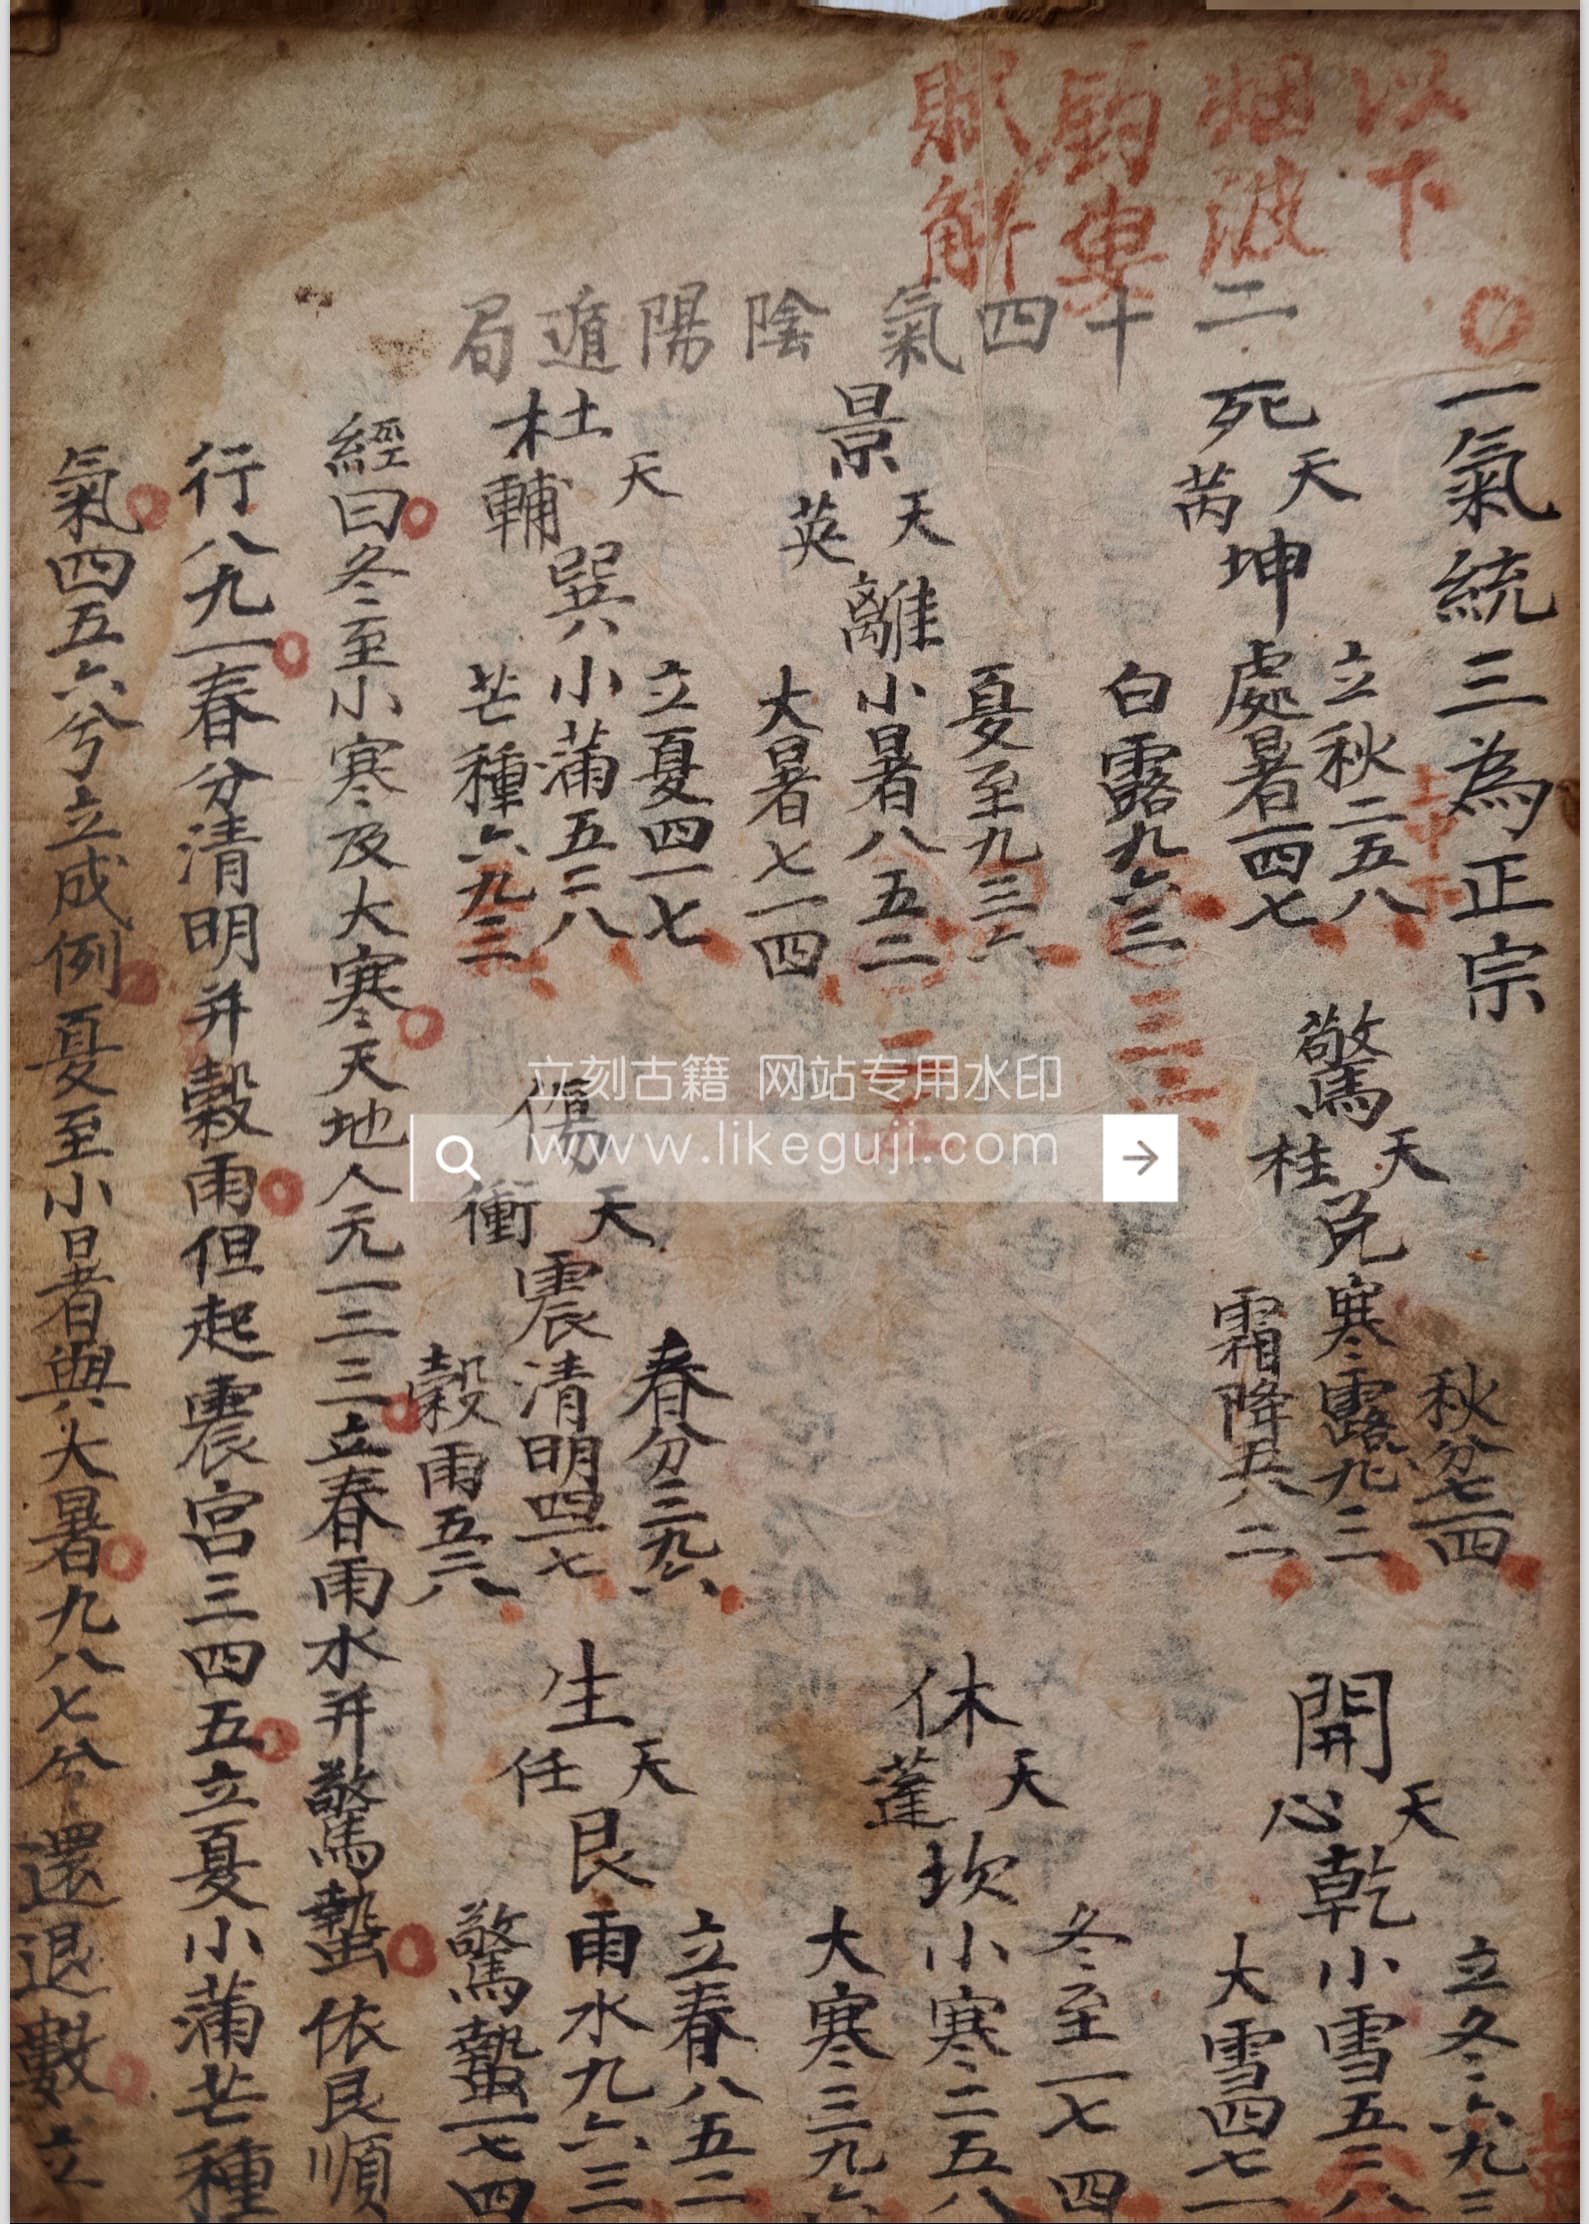 以下
烟波
釣叟
賦解
二十四氣陰陽遁局
一氣統三為正宗
死
天
芮
坤
立秋二五八
處暑一四七
白露九六三
上中下
三六
景
天
英
離
夏至九三六
小暑八五二
大暑七一四
杜
天
輔
巽
立夏四一七
小滿五二八
芒種六九三
驚
天
柱
兌
秋分七一四
寒露六九三
霜降五八二
傷
天
衝
震
春分三九六
清明四一七
穀雨五二八
開
天
心
乾
立冬六九三
小雪五二八
大雪四七一
休
天
蓬
坎
冬至一七四
小寒二五八
大寒三九六
生
天
任
艮
立春八五二
雨水九六三
驚蟄一七四
經曰冬至小寒及大寒天地人元一二三立春雨水并驚蟄依艮順
行八九一春分清明并穀雨但起震宮三四五立夏小滿芒種
氣四五六兮立成例夏至小暑與大暑九八七兮還退數立
立刻古籍 网站专用水印
www.likeguji.com